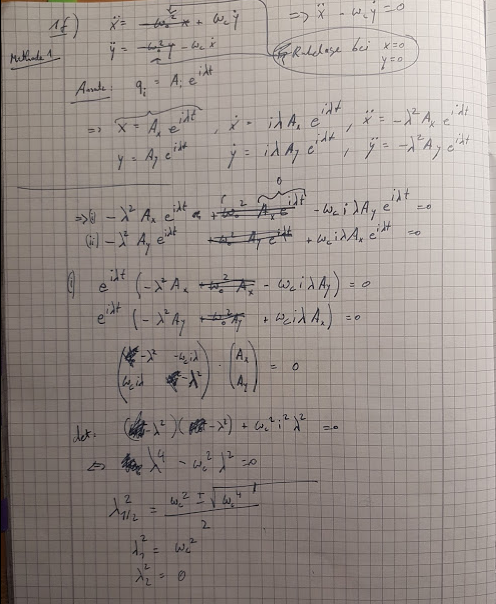 1f) ẍ = -ω₀² x + ω_c ẏ => ẍ - ω_c ẏ = 0
Methode 1 ÿ = -ω₀² y - ω_c ẋ Ruhelage bei x=0 y=0
Ansatz: q_i = A_i e^{iλt}
=> x = A_x e^{iλt}, ẋ = iλ A_x e^{iλt}, ẍ = -λ² A_x e^{iλt}
y = A_y e^{iλt} ẏ = iλ A_y e^{iλt}, ÿ = -λ² A_y e^{iλt}
0
=> (i) -λ² A_x e^{iλt} + ω₀² A_x e^{iλt} - ω_c iλ A_y e^{iλt} = 0
(ii) -λ² A_y e^{iλt} + ω₀² A_y e^{iλt} + ω_c iλ A_x e^{iλt} = 0
(i) e^{iλt} (-λ² A_x + ω₀² A_x - ω_c iλ A_y) = 0
e^{iλt} (-λ² A_y + ω₀² A_y + ω_c iλ A_x) = 0
( -λ² -ω_c iλ ) · ( A_x ) = 0
( ω_c iλ -λ² ) ( A_y )
det: (-λ²)(-λ²) + ω_c² i² λ² = 0
⇔ λ⁴ - ω_c² λ² = 0
λ²_{1/2} = (ω_c² ± √(ω_c⁴)) / 2
λ₁² = ω_c²
λ₂² = 0